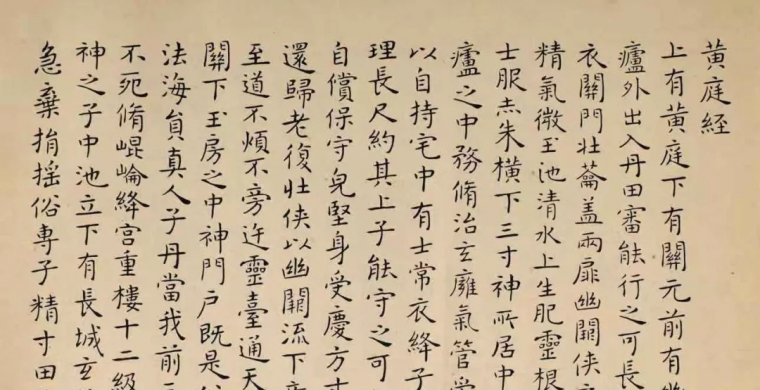 黄庭经
上有黄庭下有關元前有幽
廬外出入丹田審能行之可長
衣關門壯蘥盖兩扉幽關侠
精氣微玉池清水上生肥靈根
士服赤朱橫下三寸神所居中
廬之中務脩治玄廱氣管受
以自持宅中有士常衣絳子
理長尺約其上子能守之可
自償保守皃堅身受慶方寸
還歸老復壯侠以幽關流下
至道不煩不旁迕靈臺通天
關下玉房之中神門户既是
法海員真人子丹當我前
不死脩崐崘絳宫重樓十二級
神之子中池立下有長城玄
急棄捐揺俗専子精寸田